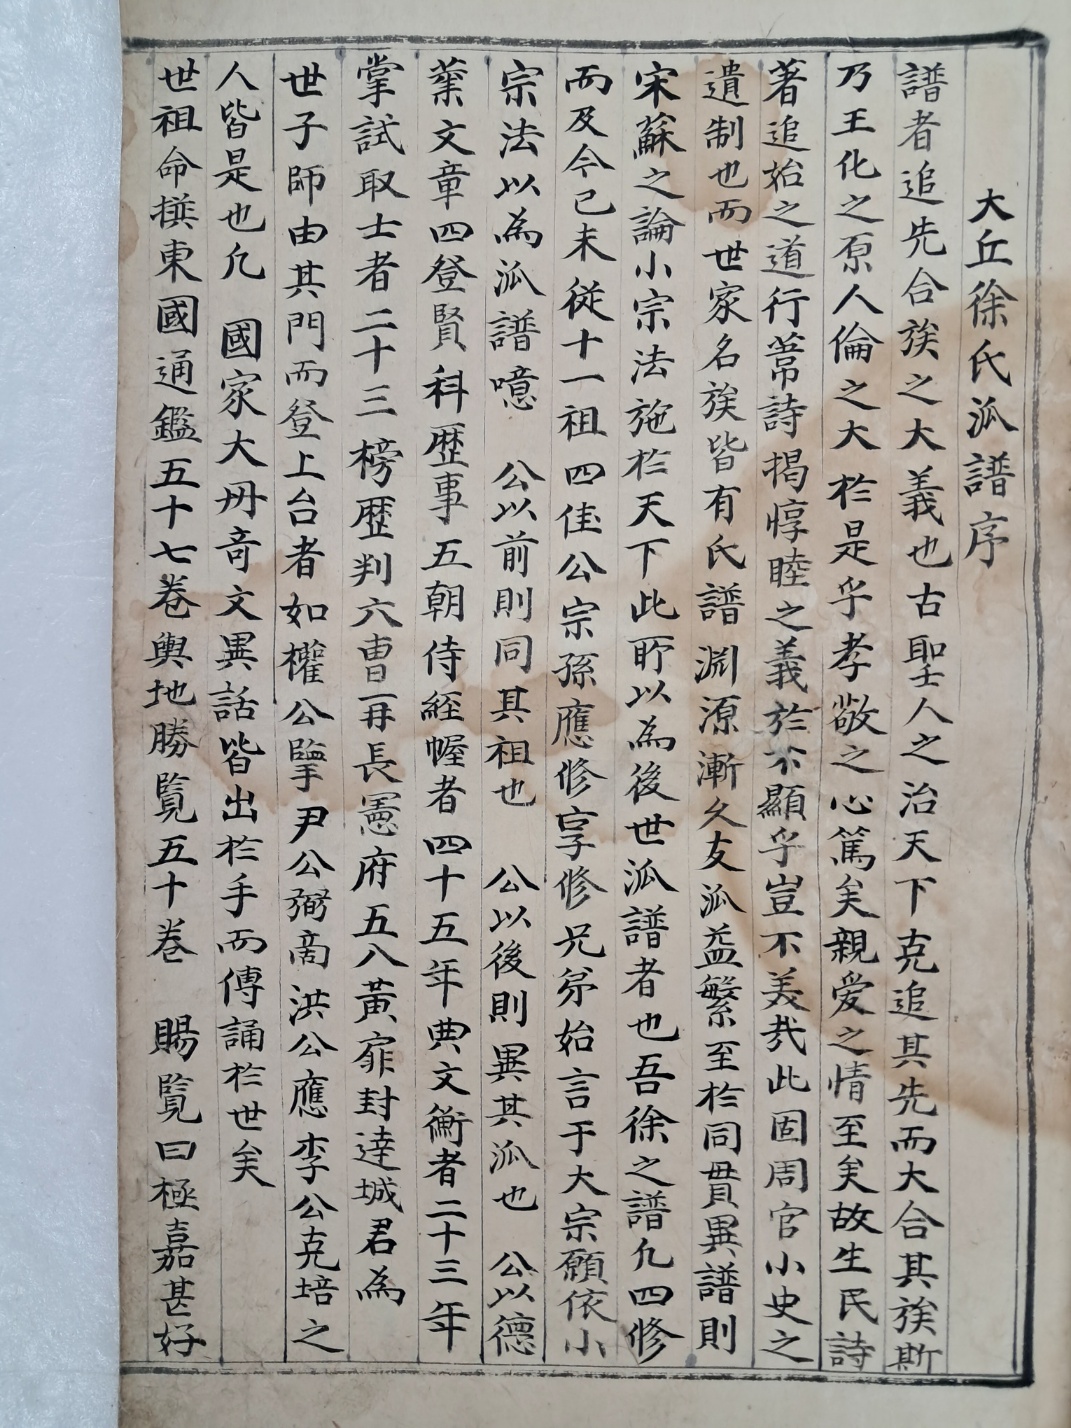 大丘徐氏派譜序
譜者追先合族之大義也古聖人之治天下克追其先而大合其族斯
乃王化之原人倫之大於是乎孝敬之心篤矣親愛之情至矣故生民詩
著追始之道行葦詩揭惇睦之義於不顯乎豈不美哉此固周官小史之
遺制也而世家名族皆有氏譜淵源漸久支派益繁至於同貫異譜則
宋蘇之論小宗法施於天下此所以為後世派譜者也吾徐之譜凡四修
而及今己未從十一祖四佳公宗孫應修享修兄弟始言于大宗願依小
宗法以為派譜噫 公以前則同其祖也 公以後則異其派也 公以德
業文章四登賢科歷事五朝侍經幄者四十五年典文衡者二十三年
掌試取士者二十三榜歷判六曹再長憲府五入黃扉封達城君為
世子師由其門而登上台者如權公擥尹公弼商洪公應李公克培之
人皆是也凡 國家大冊奇文異話皆出於手而傳誦於世矣
世祖命撰東國通鑑五十七卷輿地勝覽五十卷 賜覽曰極嘉甚好